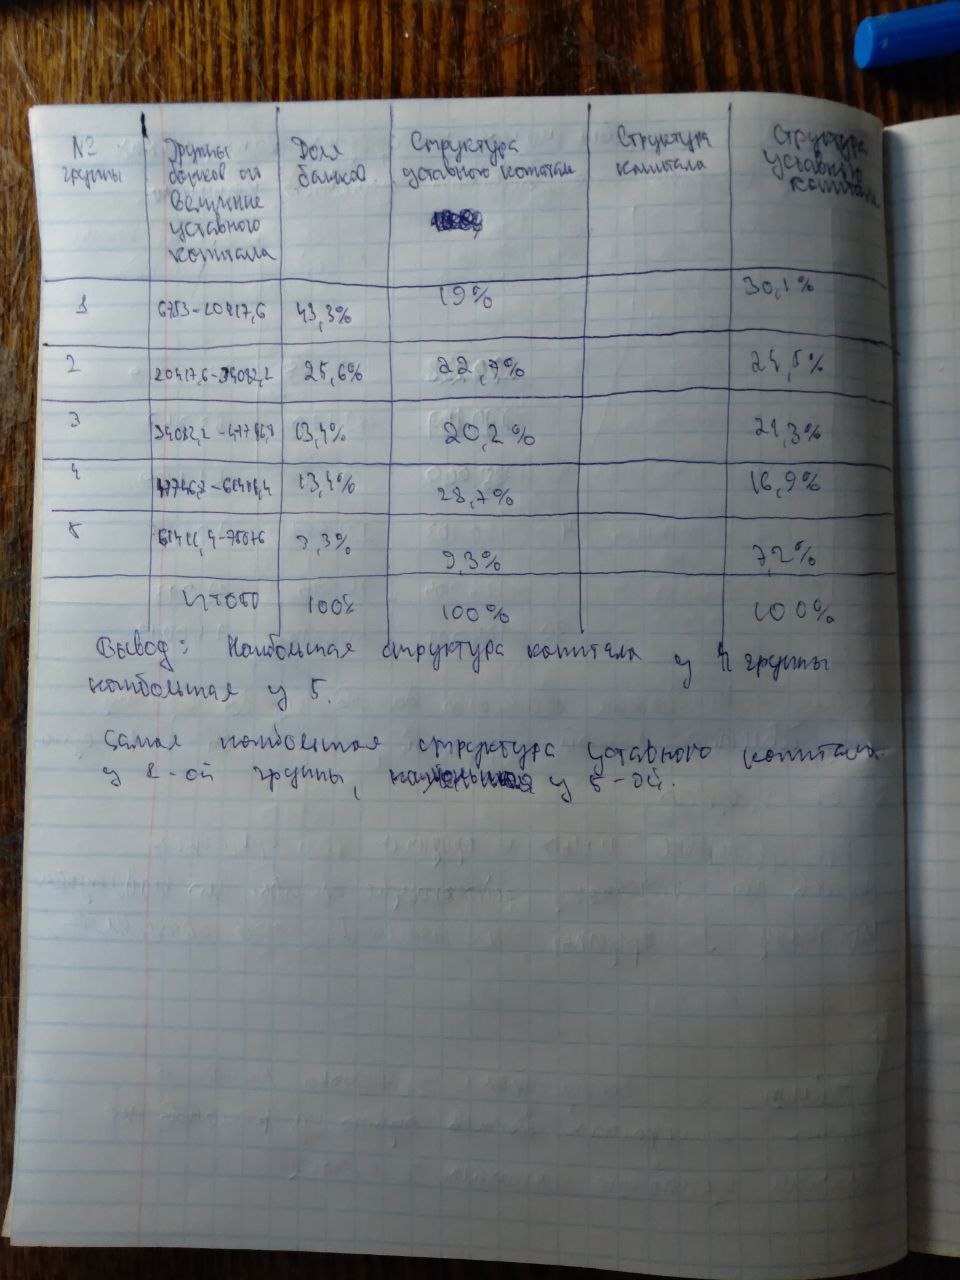 № группы | Группы банков от величине уставного капитала | Доля банков | Структура уставного капитала | Структура капитала | Структура уставного капитала
1 | 6753-20417,6 | 43,3% | 19% | | 30,1%
2 | 20417,6-34082,2 | 25,6% | 22,7% | | 24,5%
3 | 34082,2-47746,8 | 13,4% | 20,2% | | 21,3%
4 | 13,4% | 28,7% | | 16,9%
5 | 3,3% | 9,3% | | 7,2%
Итого | 100% | 100% | | 100%
Вывод: Наибольшая структура капитала у 4 группы
наибольшая у 5.
Самая наибольшая структура уставного капитала
у 1-ой группы, у 5-ой.